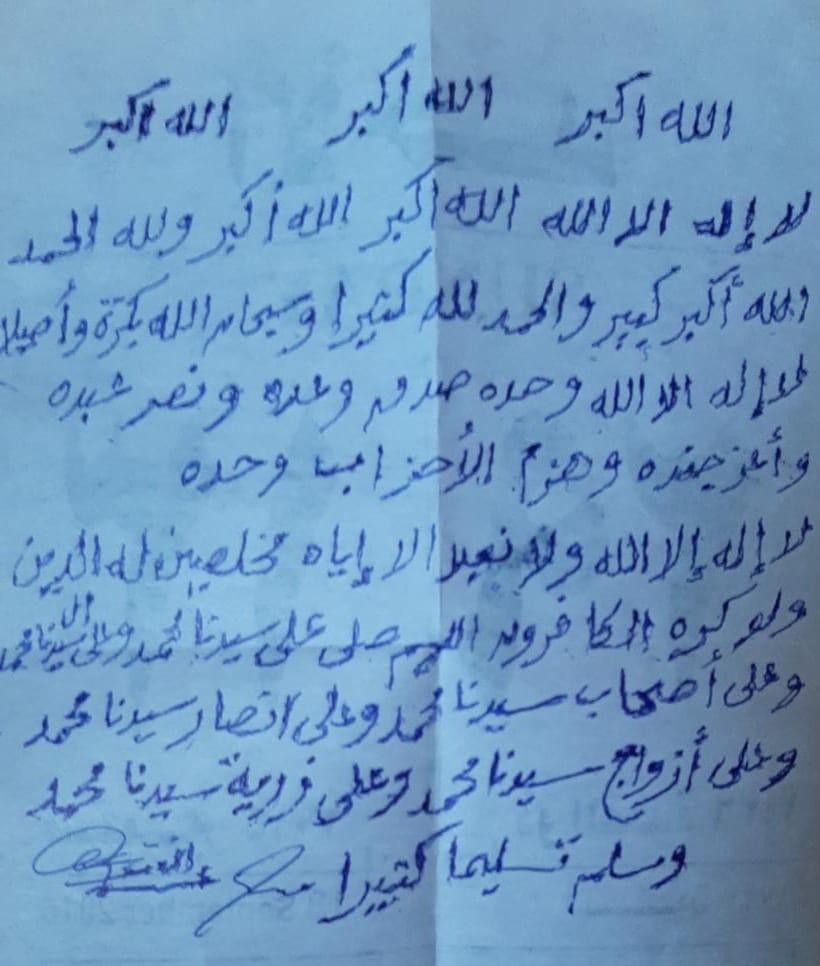 الله اكبر الله اكبر الله اكبر
لا إله الا الله الله اكبر الله أكبر ولله الحمد
الله أكبر كبير والحمد لله كثيرا وسبحان الله بكرة وأصيلا
لا إله الا الله وحده صدق وعده ونصر عبده
وأعز جنده وهزم الأحزاب وحده
لا إله إلا الله ولا نعبد الا إياه مخلصين له الدين
ولو كره الكافرون اللهم صلى على سيدنا محمد وعلى ال سيدنا محمد
وعلى أصحاب سيدنا محمد وعلى انصار سيدنا محمد
وعلى أزواج سيدنا محمد وعلى ذرية سيدنا محمد
وسلم تسليما كثيرا